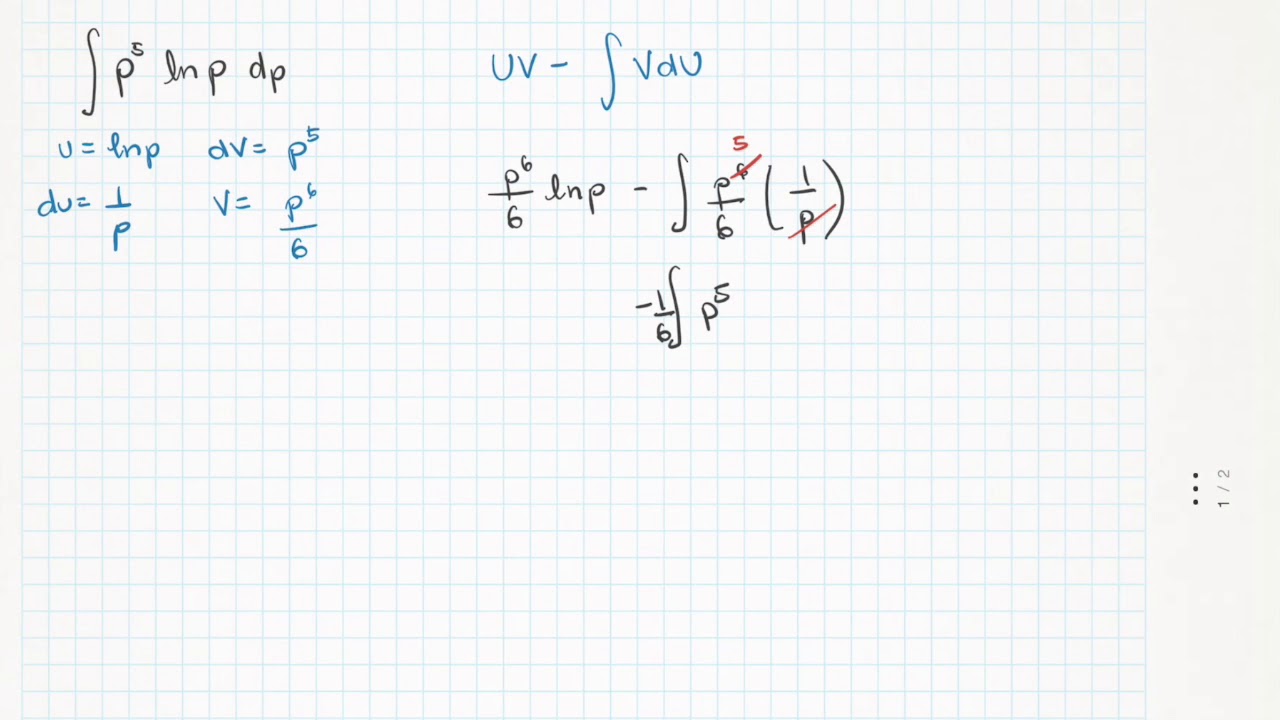 ∫ p⁵ ln p dp
UV - ∫ V dU
u = ln p dv = p⁵
du = 1/p V = p⁶/6
p⁶/6 ln p - ∫ p⁶/6 (1/p)
5
-1/6 ∫ p⁵
1 / 2